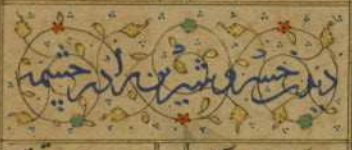 دیدن خسرو شیرین را در چشمه